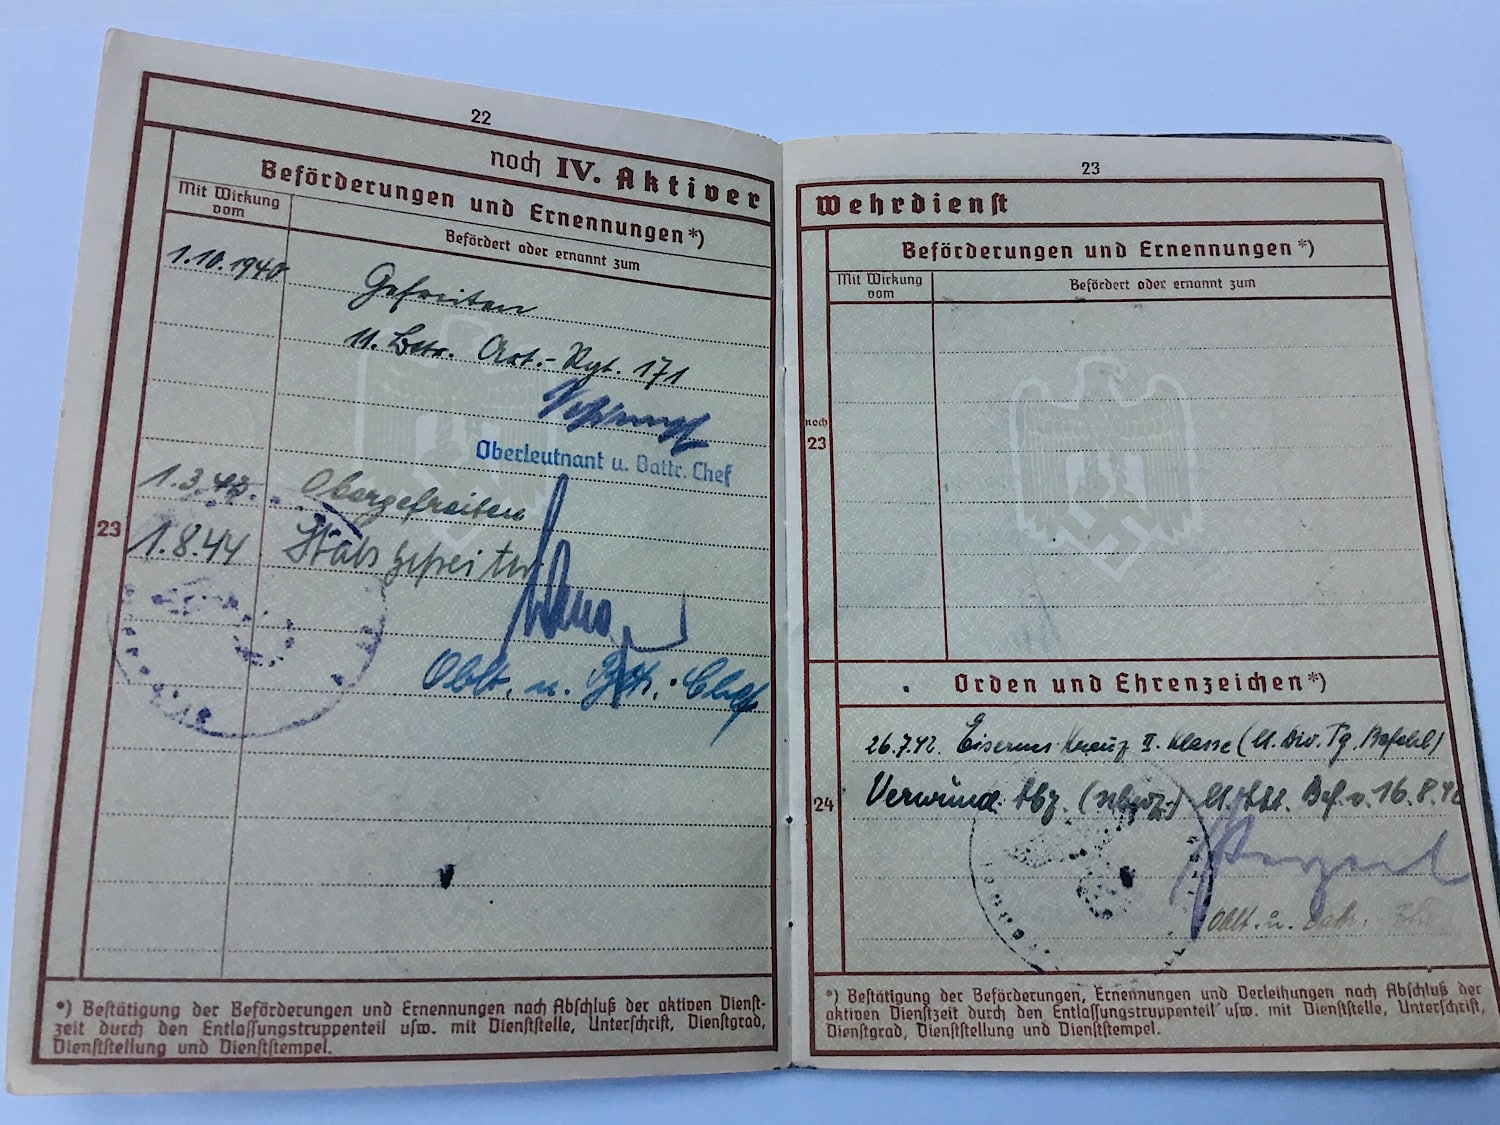 22
noch IV. Aktiver
Beförderungen und Ernennungen*)
Mit Wirkung vom
Befördert oder ernannt zum
1.10.1940 Gefreiten
11. Battr. Art.-Rgt. 171
Oberleutnant u. Battr. Chef
1.3.42. Obergefreiten
23
1.8.44 Stabsgefreiter
Oblt. u. Bttr. Chef
*) Bestätigung der Beförderungen und Ernennungen nach Abschluß der aktiven Dienst-
zeit durch den Entlassungstruppenteil usw. mit Dienststelle, Unterschrift, Dienstgrad,
Dienststellung und Dienststempel.
23
Wehrdienst
Beförderungen und Ernennungen*)
Mit Wirkung vom
Befördert oder ernannt zum
noch
23
Orden und Ehrenzeichen*)
26.7.42. Eisernes Kreuz II. Klasse ( Div. Tg. Befehl)
24
Verwund. Abz. (schwz.) Bef. v. 16.8.42
Oblt. u. Battr.
*) Bestätigung der Beförderungen, Ernennungen und Verleihungen nach Abschluß der
aktiven Dienstzeit durch den Entlassungstruppenteil usw. mit Dienststelle, Unterschrift,
Dienstgrad, Dienststellung und Dienststempel.